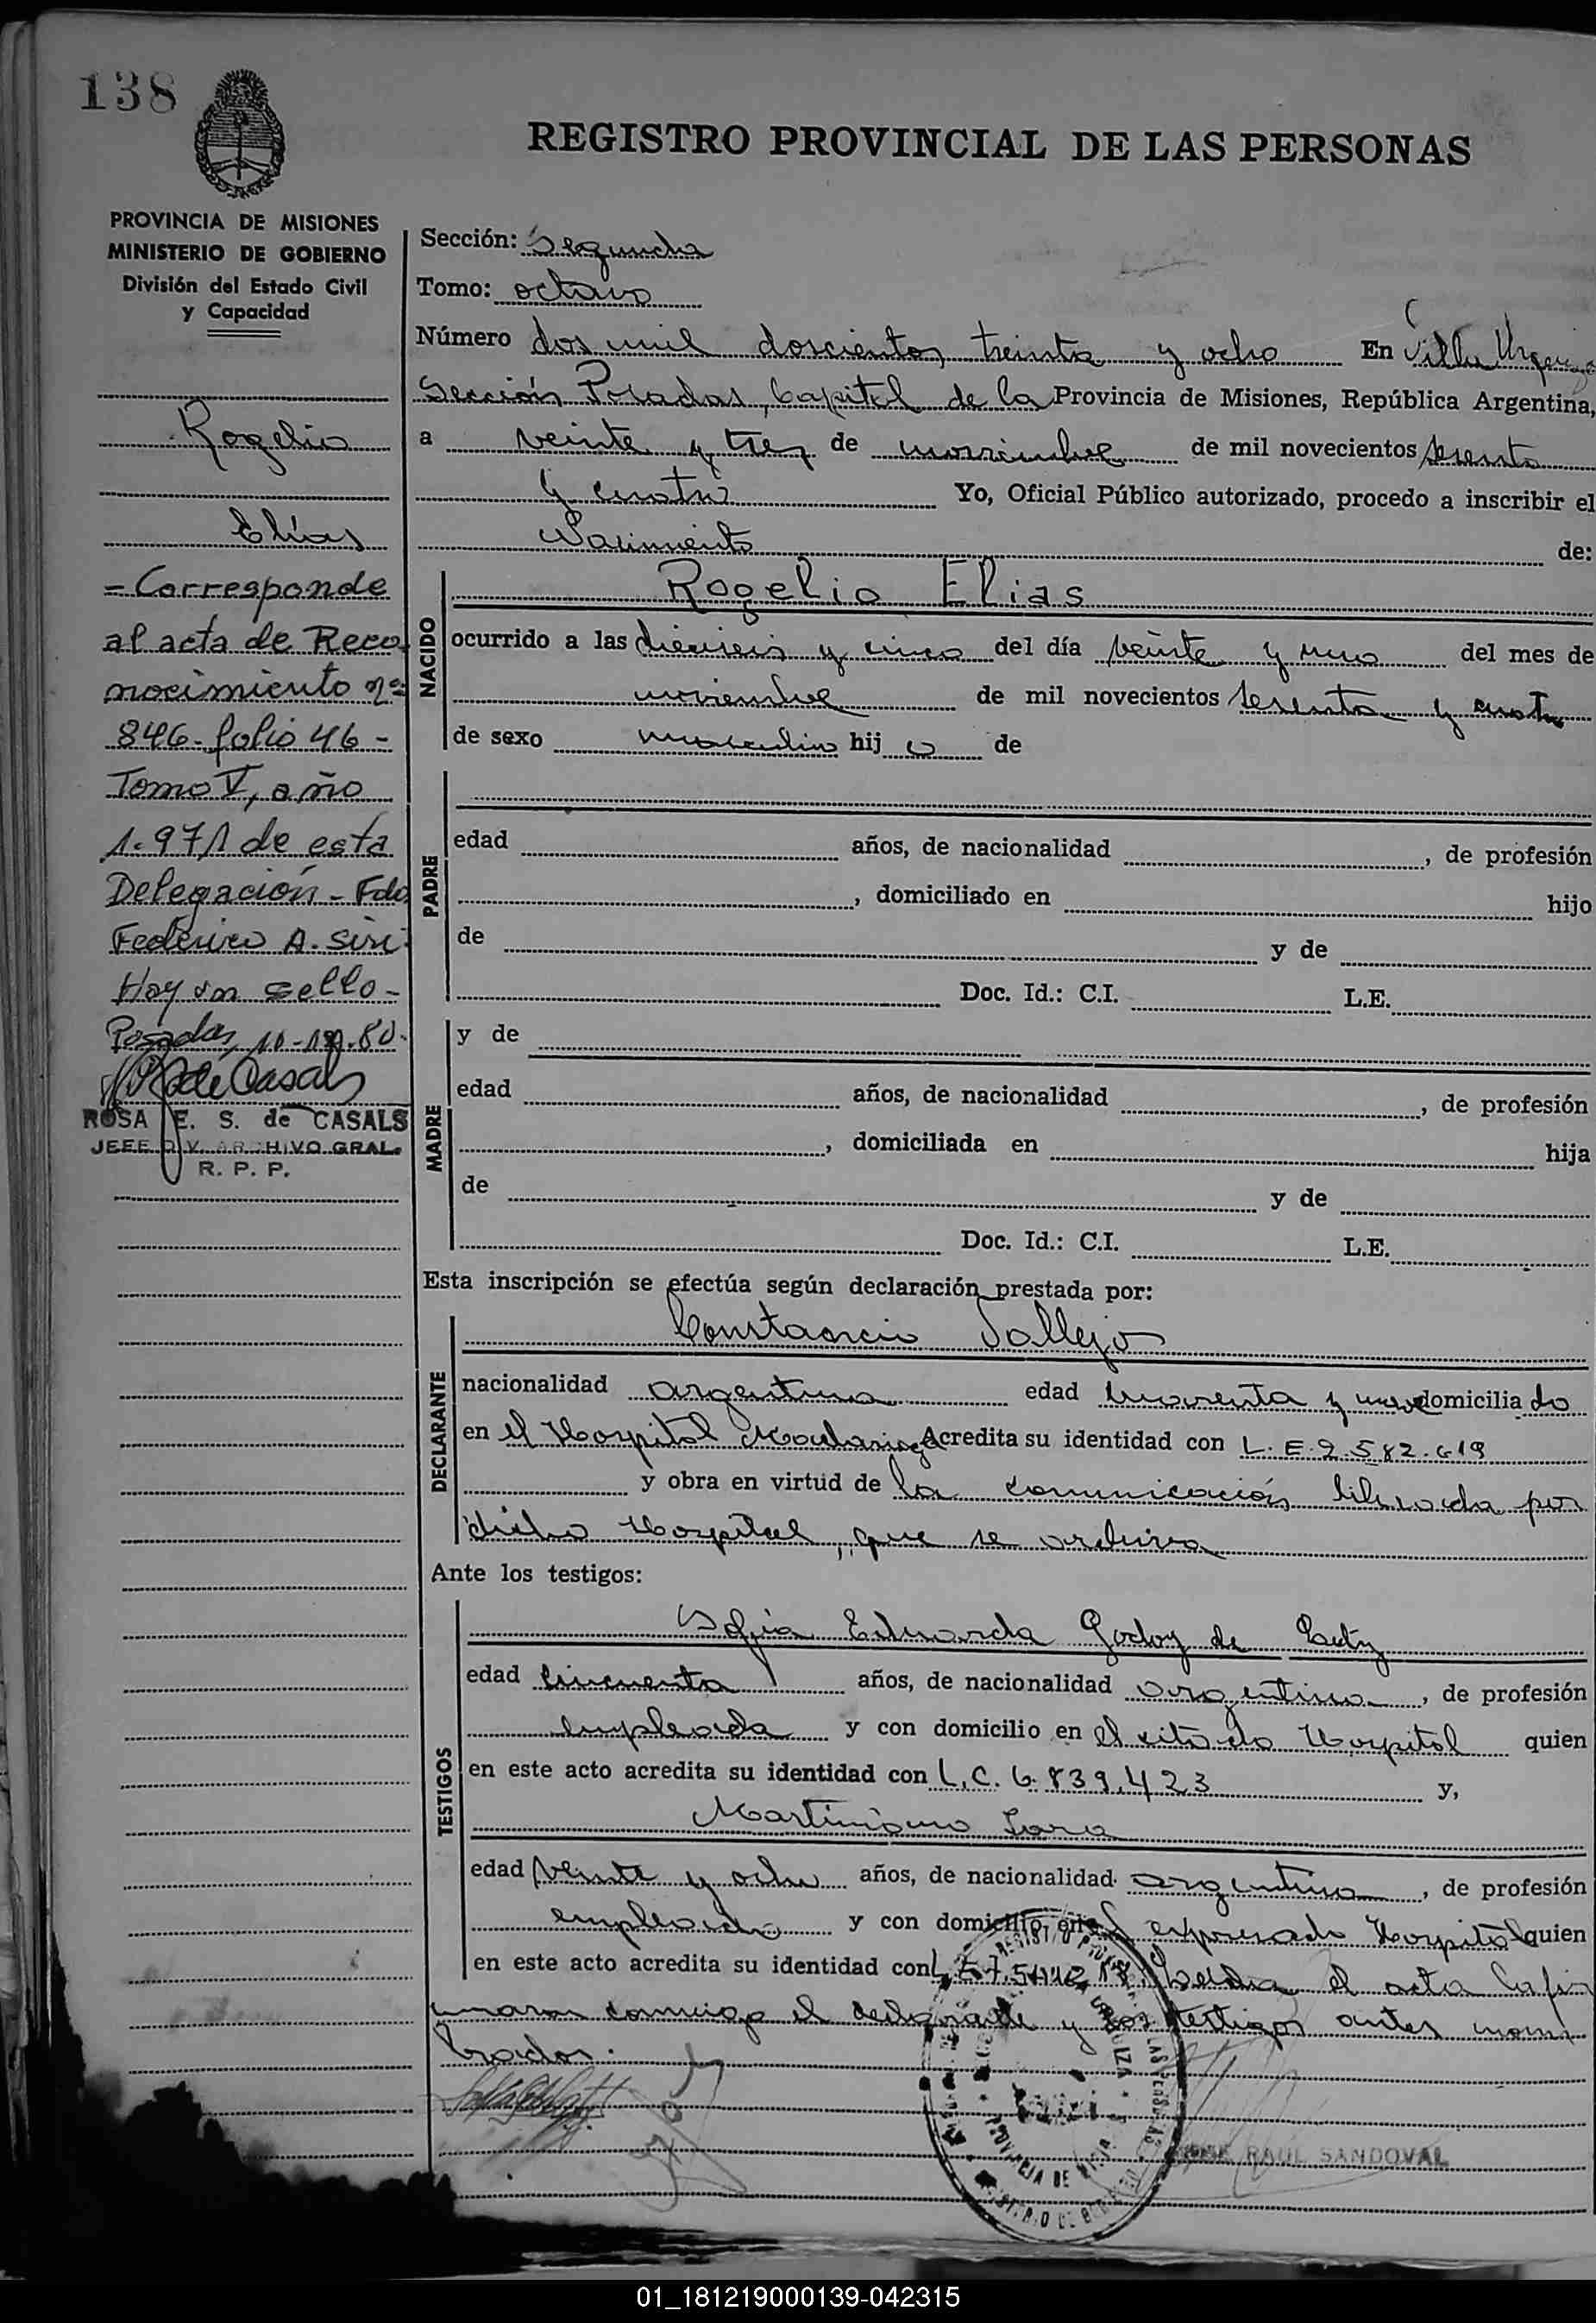 138
REGISTRO PROVINCIAL DE LAS PERSONAS
PROVINCIA DE MISIONES
MINISTERIO DE GOBIERNO
División del Estado Civil
y Capacidad
Rogelio
Elías
= Corresponde
al acta de Reco
nocimiento nº
846- folio 46 -
Tomo V, año
1.971 de esta
Delegación - Fdo
Federico A. Siri
Hay un sello -
Posadas, 10-
ROSA E. S. de CASALS
JEFE DIV. ARCHIVO GRAL.
R. P. P.
Sección: Segunda
Tomo: octavo
Número dos mil doscientos treinta y ocho En Villa Urquiza
Sección Posadas, Capital de la Provincia de Misiones, República Argentina,
a veinte y tres de noviembre de mil novecientos sesenta
y cuatro Yo, Oficial Público autorizado, procedo a inscribir el
Nacimiento de:
NACIDO
Rogelio Elias
ocurrido a las dieciseis y cinco del día veinte y uno del mes de
noviembre de mil novecientos sesenta y cuatro
de sexo masculino hij o de
PADRE
edad años, de nacionalidad , de profesión
, domiciliado en hijo
de y de
Doc. Id.: C.I. L.E.
MADRE
y de
edad años, de nacionalidad , de profesión
, domiciliada en hija
de y de
Doc. Id.: C.I. L.E.
Esta inscripción se efectúa según declaración prestada por:
DECLARANTE
Constancio Vallejos
nacionalidad argentina edad cuarenta y nueve domicilia do
en el Hospital Madariaga Acredita su identidad con L. E. 2.582.619
y obra en virtud de la comunicación librada por
dicho Hospital, que se archiva
Ante los testigos:
TESTIGOS
Sofia Eduarda Godoy de
edad cincuenta años, de nacionalidad argentina , de profesión
empleada y con domicilio en el citado Hospital quien
en este acto acredita su identidad con L.C. 6.839.423 y,
Martiniano Lara
edad veinte y ocho años, de nacionalidad argentina , de profesión
empleado y con domicilio en el expresado Hospital quien
en este acto acredita su identidad con Leída el acta la fir
maron conmigo el declarante y los testigos antes nom
brados.
PROVINCIA DE MISIONES
JOSE RAUL SANDOVAL
01_181219000139-042315